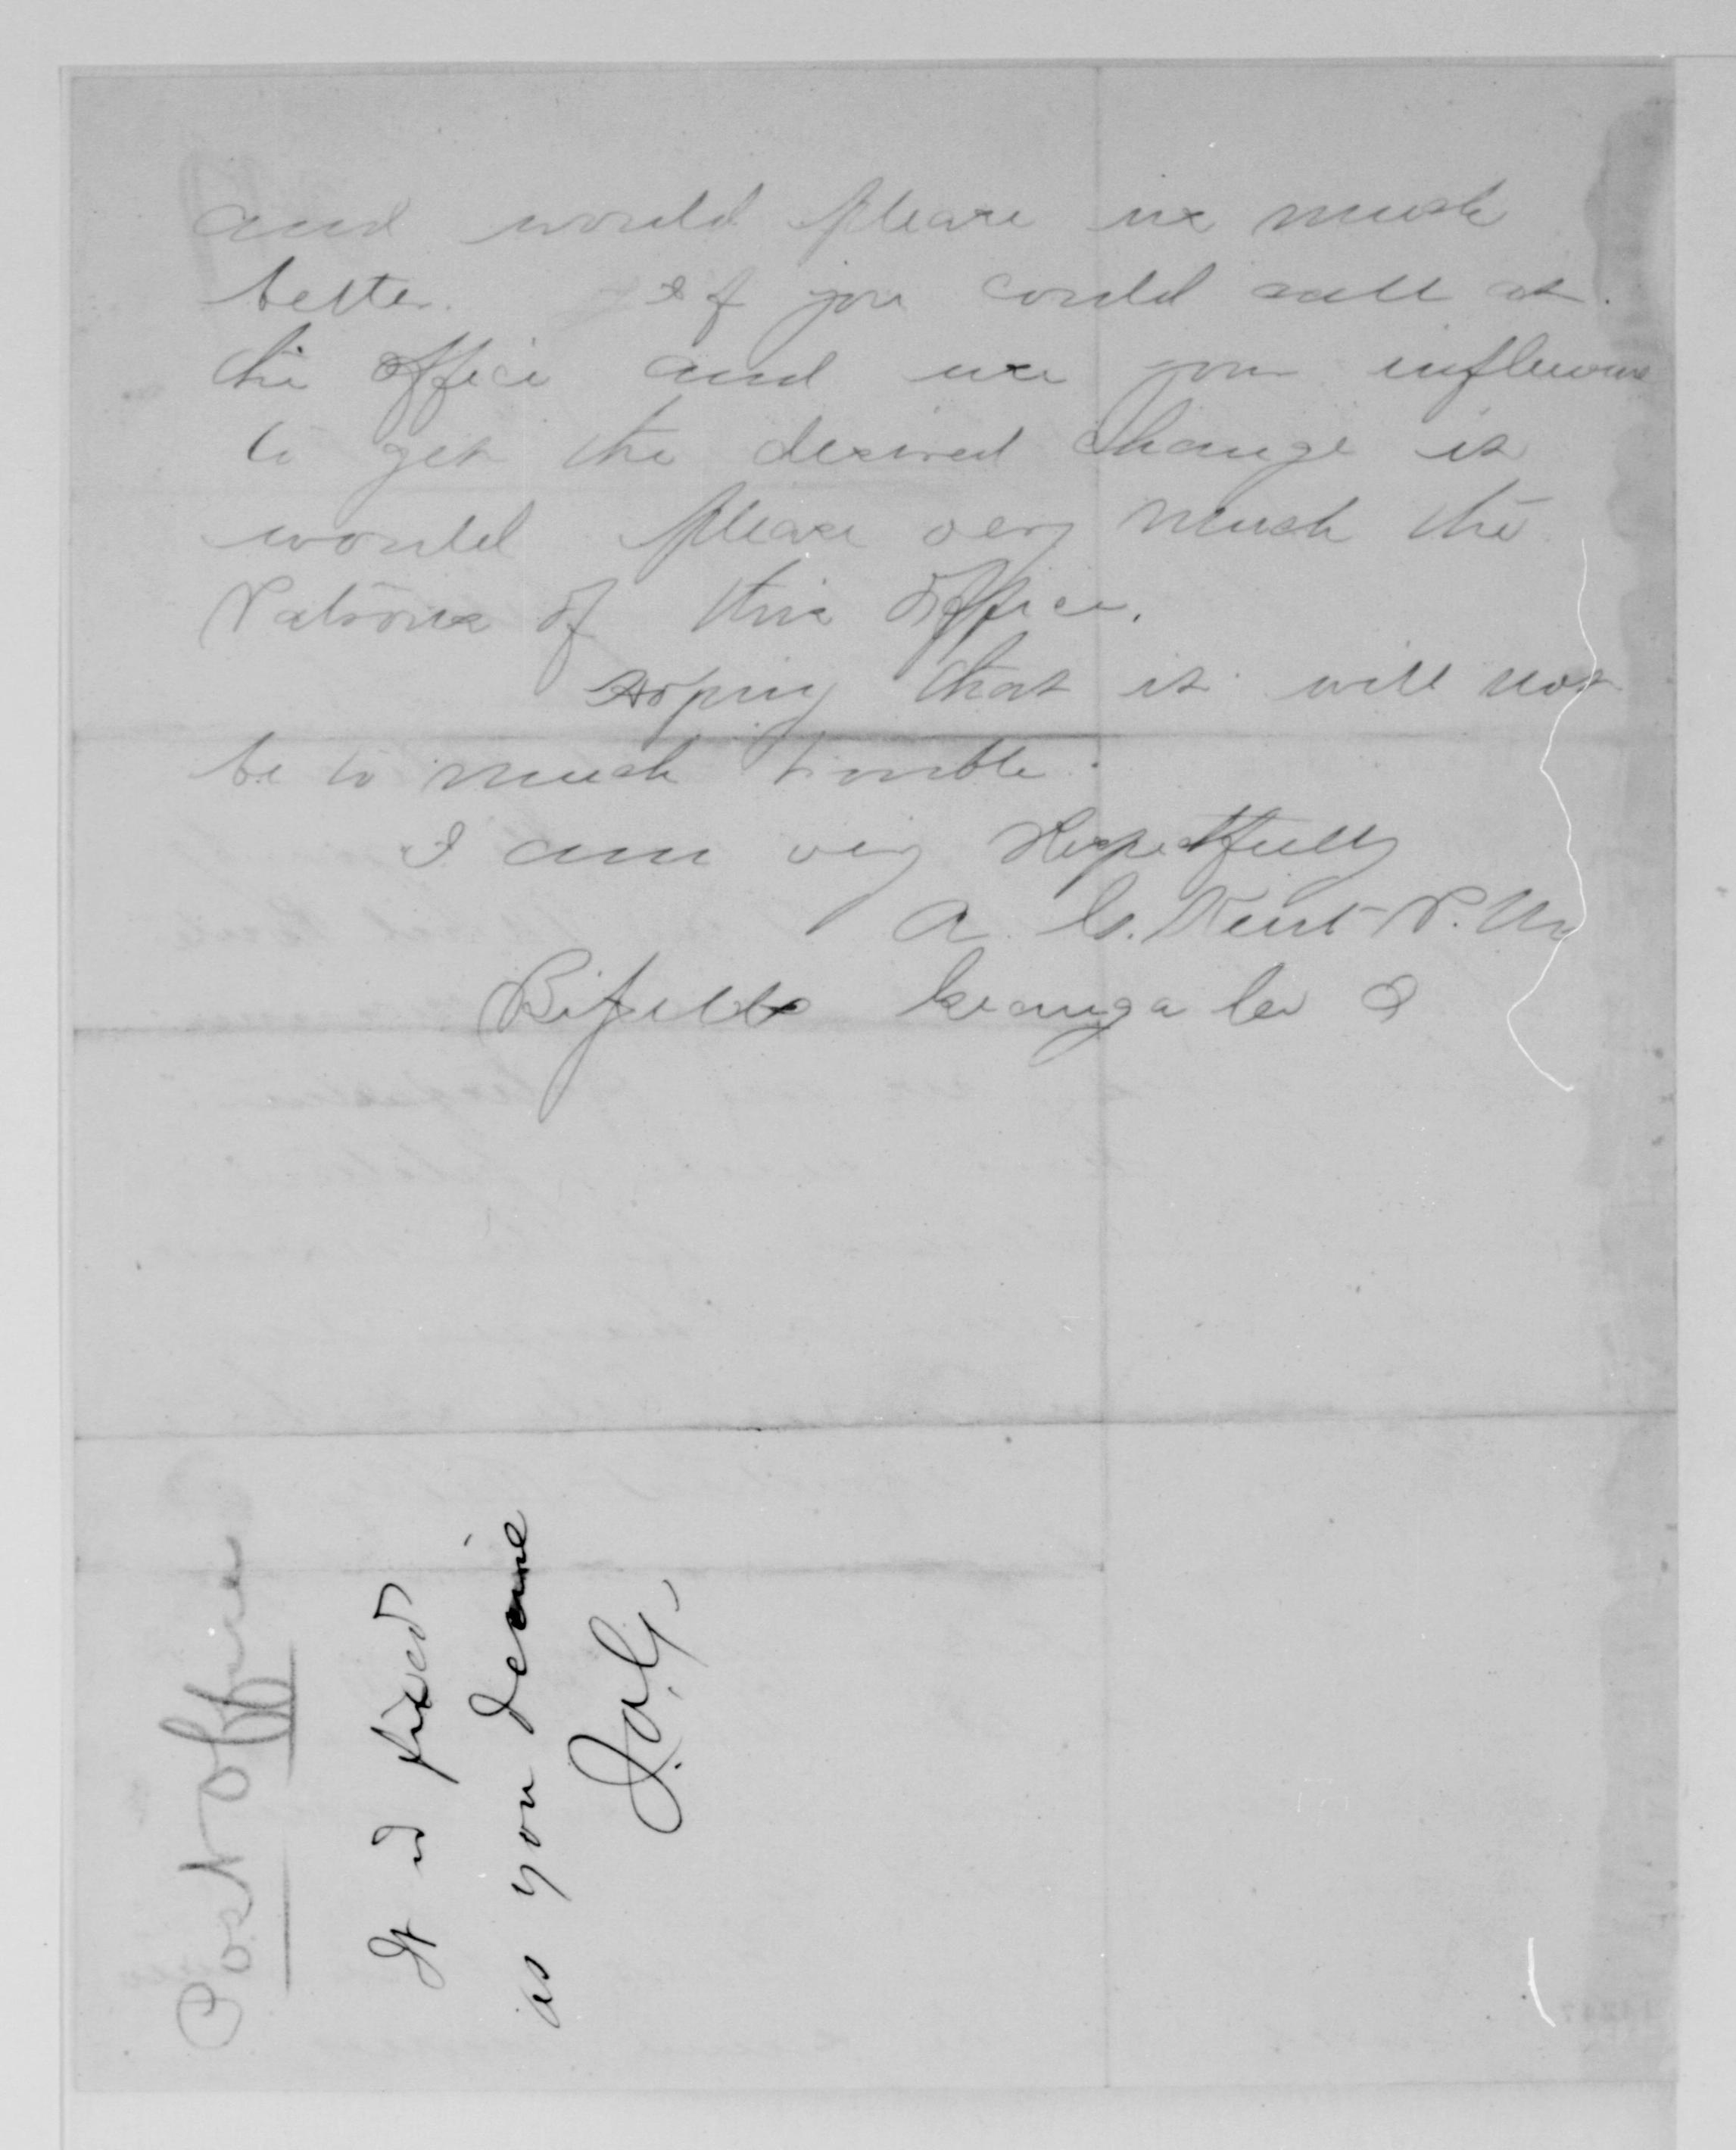 and would please us much
better. If you could call at
the office and use your influence
to get the desired change it
would please very much the
Patrons of this office.
Hoping that it will not
be to much trouble.
I am very Respectfully
A. C. Kent P. M.
Geauga Co O
Post Office
It is fixed
as you desire
J.A.G.